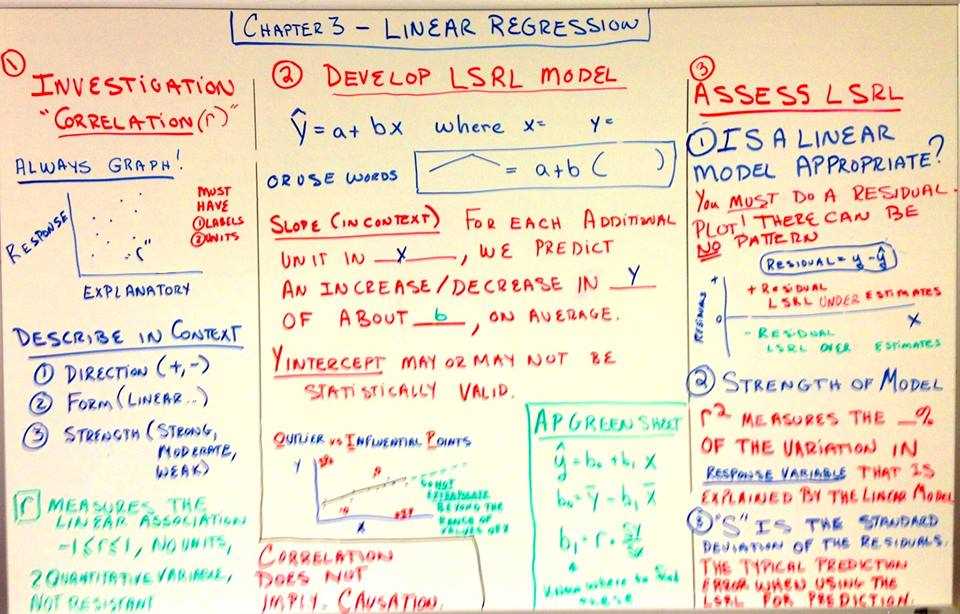 CHAPTER 3 – LINEAR REGRESSION
①
INVESTIGATION
"CORRELATION(r)"
ALWAYS GRAPH!
MUST
HAVE
① LABELS
② UNITS
RESPONSE
"r"
EXPLANATORY
DESCRIBE IN CONTEXT
① DIRECTION (+,-)
② FORM (LINEAR...)
③ STRENGTH (STRONG,
MODERATE,
WEAK)
r MEASURES THE
LINEAR ASSOCIATION
-1≤r≤1, NO UNITS,
2 QUANTITATIVE VARIABLE,
NOT RESISTANT
② DEVELOP LSRL MODEL
ŷ = a + bx where x= y=
OR USE WORDS = a+b ( )
SLOPE (IN CONTEXT) FOR EACH ADDITIONAL
UNIT IN x, WE PREDICT
AN INCREASE/DECREASE IN y
OF ABOUT b, ON AVERAGE.
Y INTERCEPT MAY OR MAY NOT BE
STATISTICALLY VALID.
OUTLIER vs INFLUENTIAL POINTS
Y
X
DO NOT
EXTRAPOLATE
BEYOND THE
RANGE OF
VALUES OF X
CORRELATION
DOES NOT
IMPLY CAUSATION.
AP GREEN SHEET
ŷ = b₀ + b₁ x
b₀ = ȳ - b₁ x̄
b₁ = r · sy/sx
Know where to find
these
③
ASSESS LSRL
① IS A LINEAR
MODEL APPROPRIATE?
You MUST DO A RESIDUAL
PLOT! THERE CAN BE
NO PATTERN
RESIDUAL = y - ŷ
RESIDUALS
+
0
+ RESIDUAL
LSRL UNDER ESTIMATES
X
- RESIDUAL
LSRL OVER ESTIMATES
② STRENGTH OF MODEL
r² MEASURES THE _%
OF THE VARIATION IN
RESPONSE VARIABLE THAT IS
EXPLAINED BY THE LINEAR MODEL
③ "S" IS THE STANDARD
DEVIATION OF THE RESIDUALS.
THE TYPICAL PREDICTION
ERROR WHEN USING THE
LSRL FOR PREDICTION.